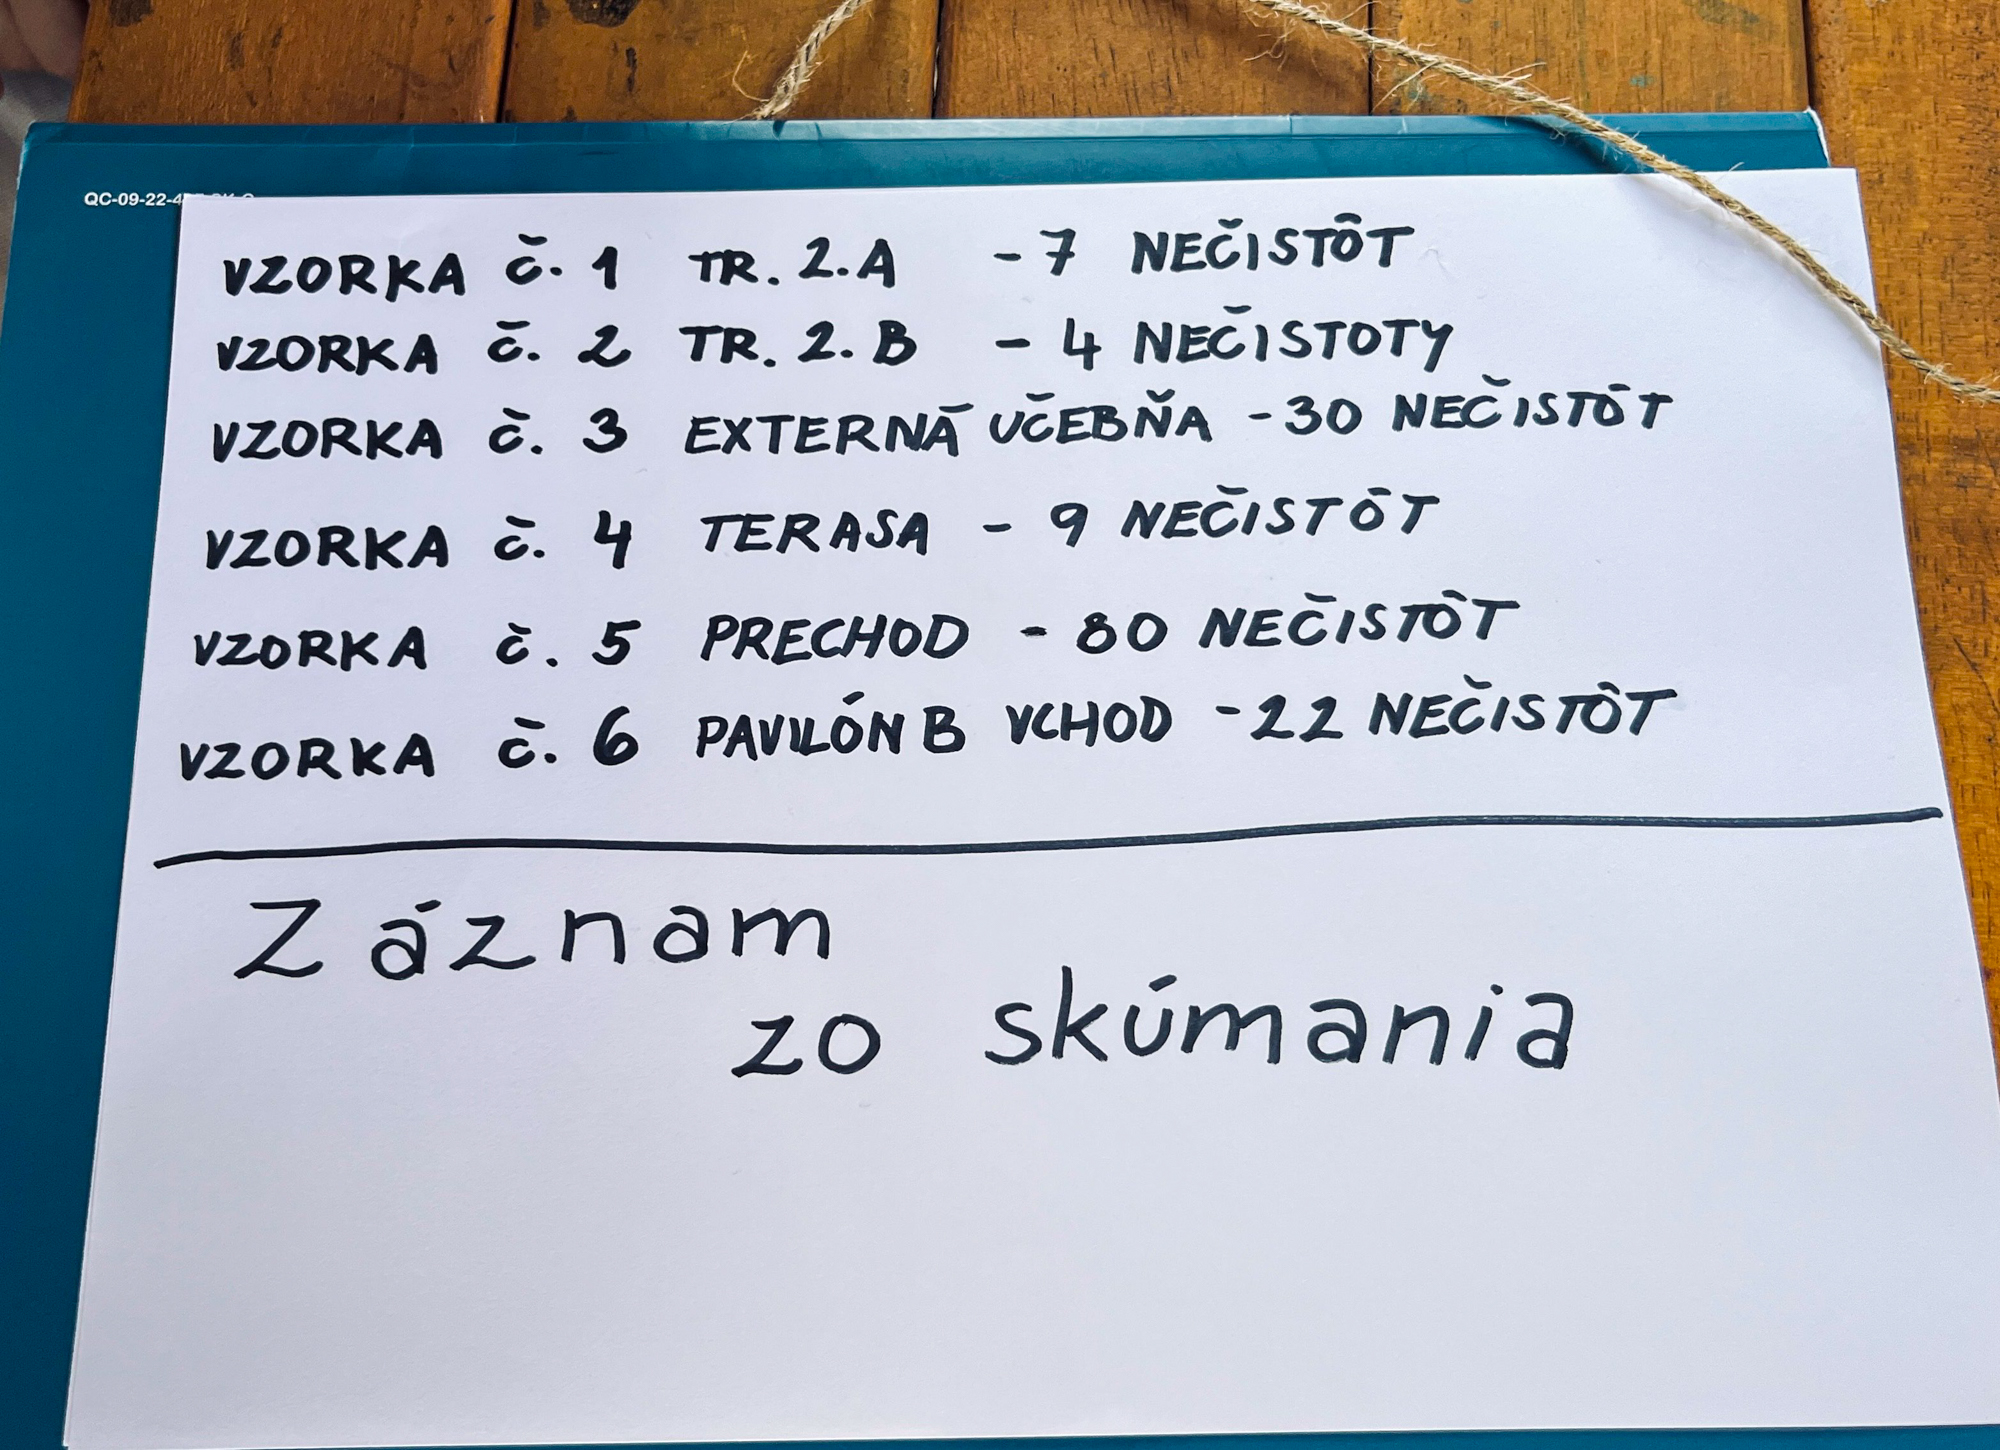 QC-09-22-4
VZORKA č. 1 TR. 2.A - 7 NEČISTÔT
VZORKA č. 2 TR. 2.B - 4 NEČISTOTY
VZORKA č. 3 EXTERNÁ UČEBŇA - 30 NEČISTÔT
VZORKA č. 4 TERASA - 9 NEČISTÔT
VZORKA č. 5 PRECHOD - 80 NEČISTÔT
VZORKA č. 6 PAVILÓN B VCHOD - 22 NEČISTÔT
Záznam
zo skúmania